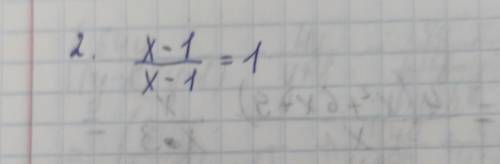 2. x-1/x-1 = 1